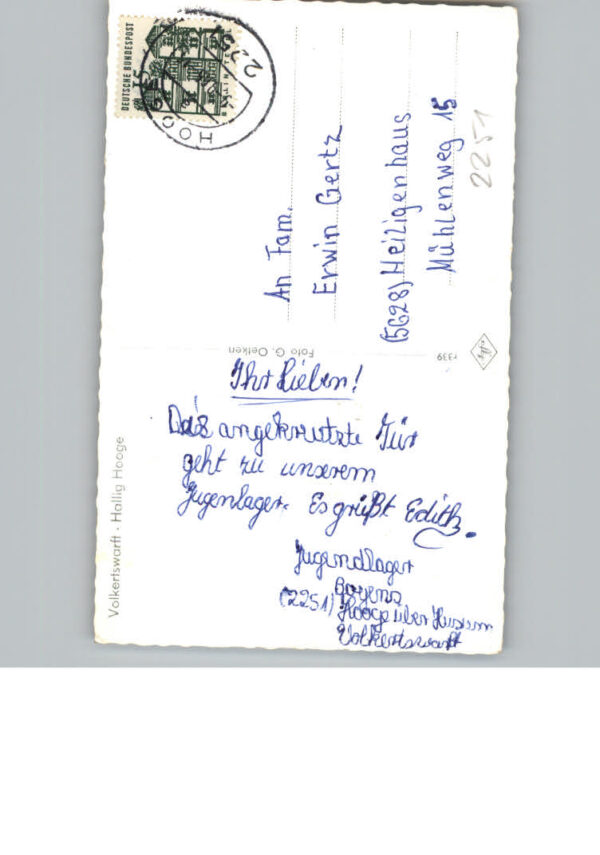 DEUTSCHE BUNDESPOST
15
2251
HOOGE
An Fam.
Erwin Gertz
(5628) Heiligenhaus
Mühlenweg 15
2251
Foto G. Oetken
r339
Volkertswarft · Hallig Hooge
Ihr Lieben!
Das angekreutzte Tür
geht zu unserem
Jugenlager. Es grüßt Edith.
Jugendlager
Boyens
(2251) Hooge über Husum
Volkertswarft